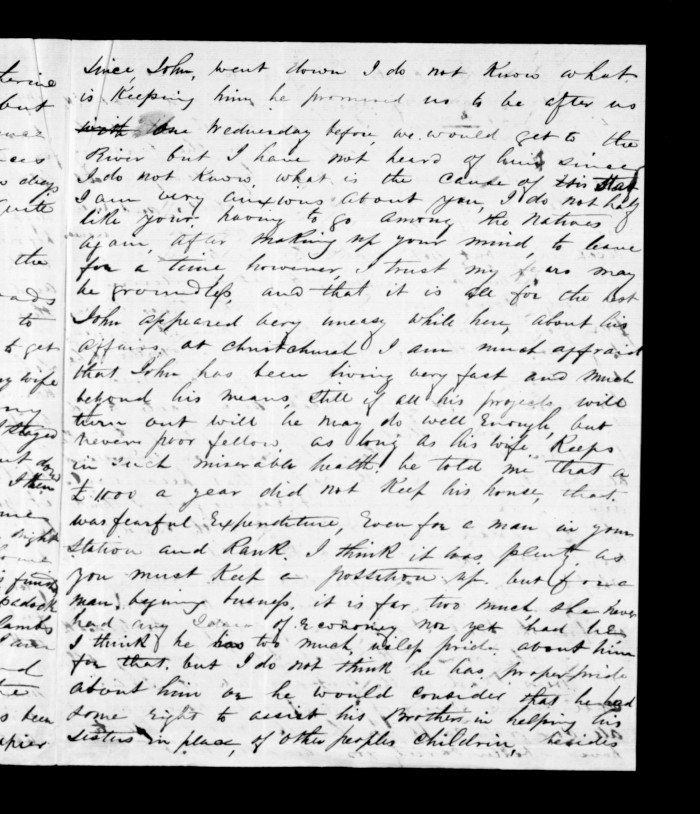 Since, John, went down I do not Know what
is Keeping him he promised us to be after us
Wednesday before we would get to the
River but I have not heard of him since
I do not Know, what is the cause of this
I am very anxious about you, I do not
like your having to go among the Natives
again, after making up your mind, to leave
for a time, however, I trust my fears may
be groundless, and that it is all for the best
John appeared very uneasy while here, about his
affairs at Christchurch I am much affraid
that John has been living very fast and much
beyond his means, still if all his projects will
turn out will he may do well Enough, but
never poor fellow as long as his wife Keeps
in such miserable health, he told me that a
£1000 a year did not Keep his house, that
was fearful Expenditure, Even for a man in your
Station and Rank. I think it was plenty as
you must Keep a possition up. but for a
man, bigining business, it is far two much. She never
had any of Economy nor yet had he
I think he has too much, pride, about him
for that. but I do not think he has proper pride
about him or he would consider that he had
some right to assist his Brothers in helping his
Sisters in place, of other peoples Childrin, besides
terine
but
the
to
to get
my wife
my
I stayed
I then
night
funds
paddock
lambs
the
been